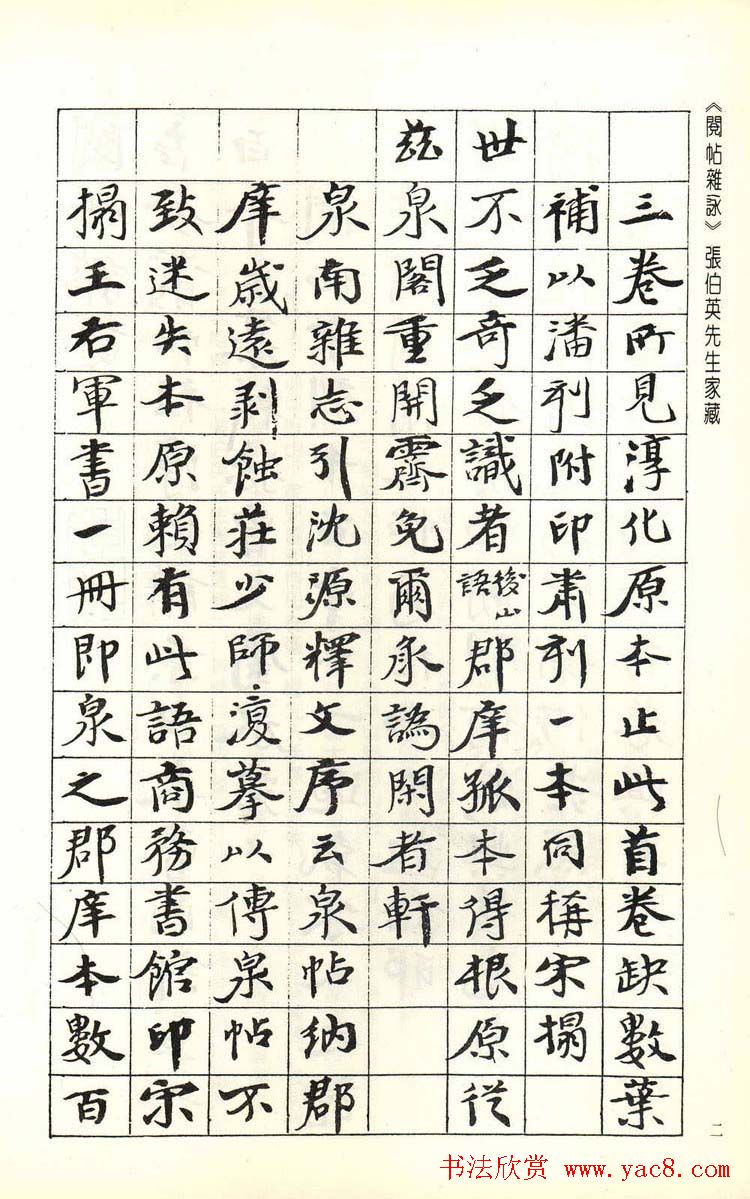 《閱帖雜詠》張伯英先生家藏
三卷所見淳化原本止此首卷缺數葉
補以潘刊附印肅刊一本同稱宋搨
世不乏奇乏識者後山語郡庠孤本得根原從
茲泉閣重開霽免爾承譌閑者軒
泉南雜志引沈源釋文序云泉帖納郡
庠歲遠剥蝕莊少師復摹以傳泉帖不
致迷失本原賴有此語商務書館印宋
搨王右軍書一冊即泉之郡庠本數百
二
书法欣赏 www.yac8.com